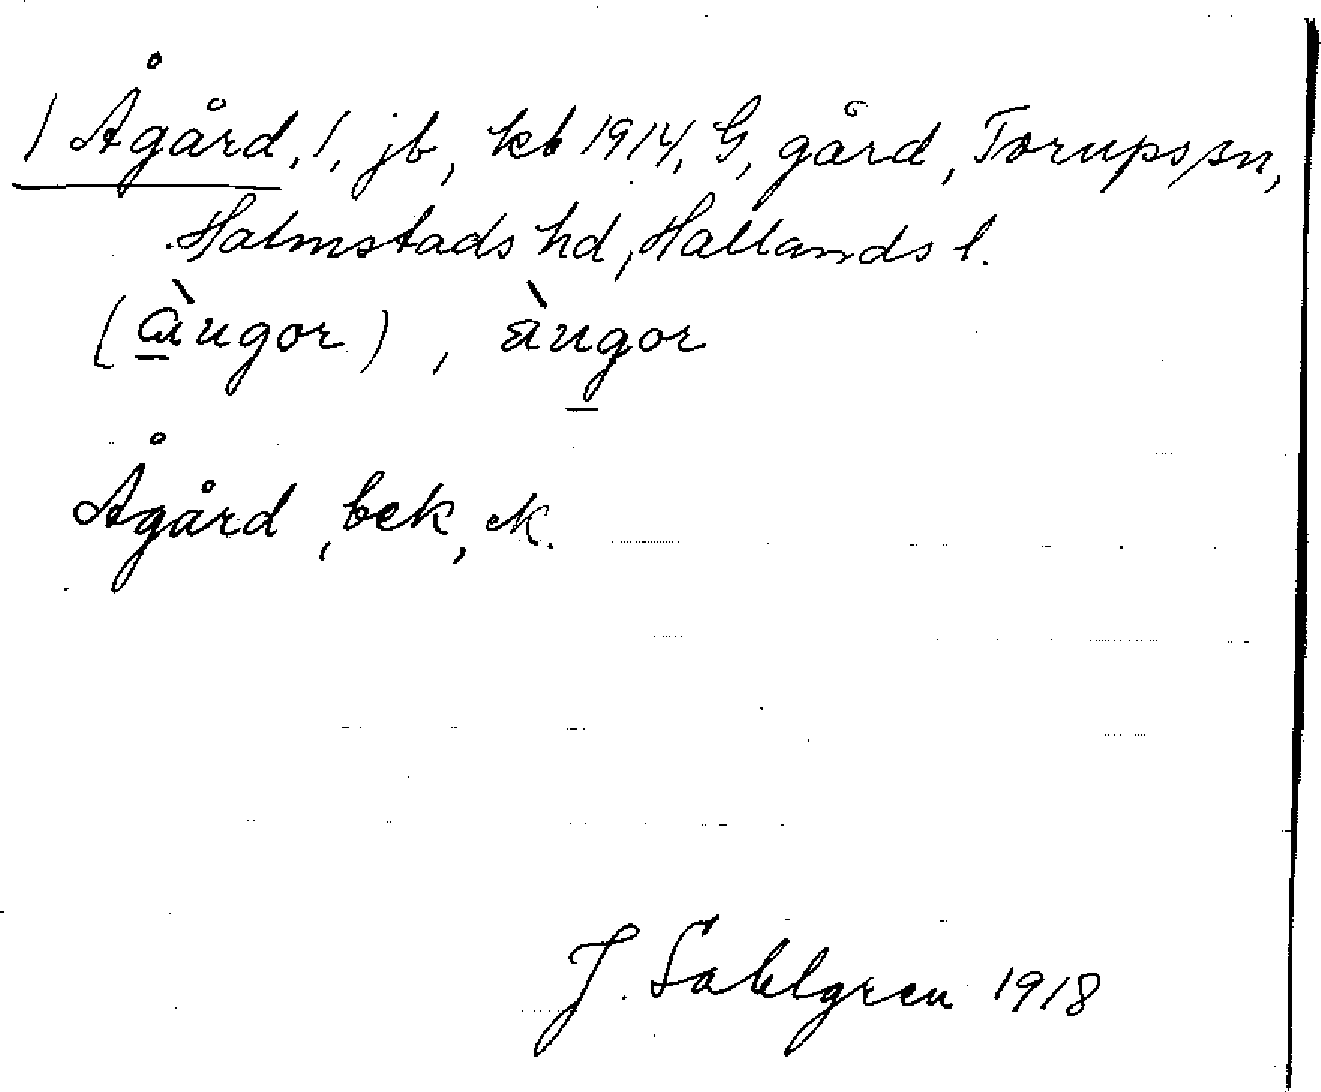 1 Ågård, 1, jb, kb 1914, G, gård, Torups sn,
Halmstads hd, Hallands l.
(àugor), àugor
Ågård, bek, ek.
J. Sahlgren 1918